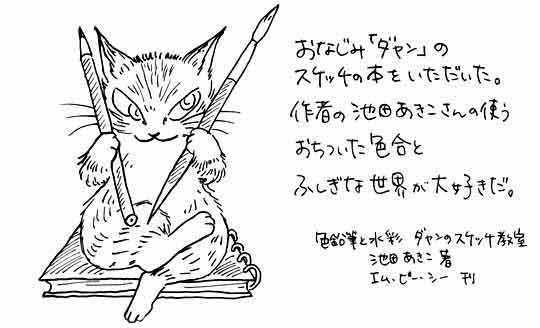 おなじみ「ダヤン」の
スケッチの本をいただいた。
作者の池田あきこさんの使う
おちついた色合と
ふしぎな世界が大好きだ。
色鉛筆と水彩 ダヤンのスケッチ教室
池田あきこ 著
エム・ピー・シー 刊